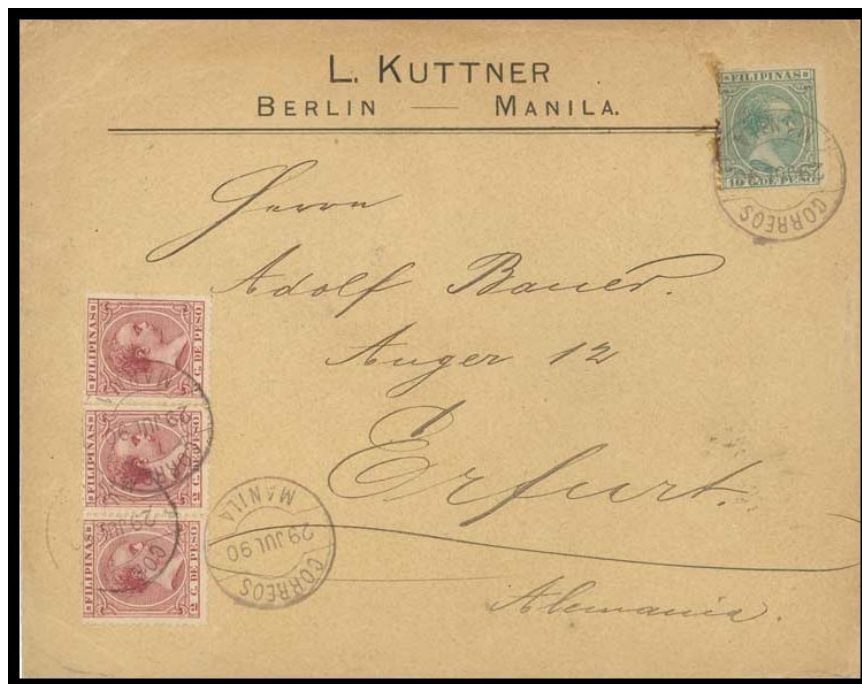 L. KUTTNER
BERLIN — MANILA.
FILIPINAS
10 C. DE PESO
MANILA
29 JUL 90
CORREOS
Herrn
Adolf Bauer.
Anger 12
Erfurt.
Alemania.
FILIPINAS
C. DE PESO
FILIPINAS
2 C. DE PESO
FILIPINAS
2 C. DE PESO
29 JUL 90
CORREOS
MANILA
29 JUL 90
CORREOS